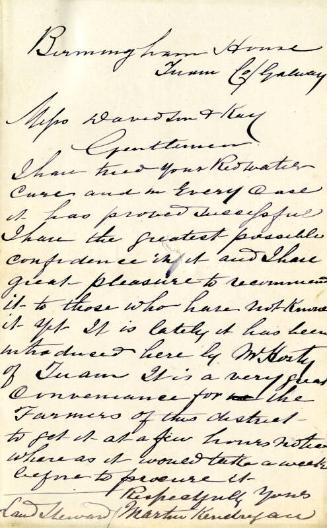 Birmingham House
Tuam Co/ Galway
Messs Davidson & Kay
Gentlemen
I have tried your Redwater
Cure and in Every Case
it has proved successful
I have the greatest possible
confidence in it and I have
great pleasure to recommend
it to those who have not Known
it yet It is lately it has been
introduced here by Mr
of Tuam It is a very great
Convenience for the
Farmers of this district
to get it at a few hours notice
where as it would take a week
before to procure it
Respectfully Yours
Land Steward Martin